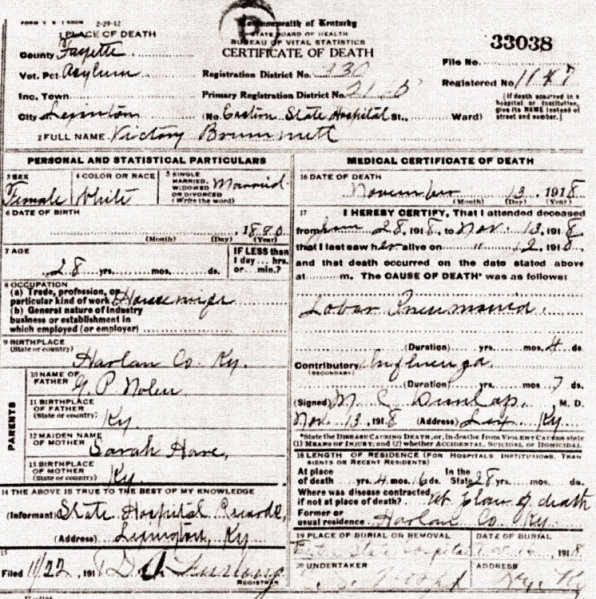 2-29-12
Commonwealth of Kentucky
STATE BOARD OF HEALTH
BUREAU OF VITAL STATISTICS
CERTIFICATE OF DEATH
33038
1 PLACE OF DEATH
County Fayette
Vot. Pct Asylum
Inc. Town
City Lexington
Registration District No. 330
Primary Registration District No.
(No. Eastern State Hospital St., Ward)
File No.
Registered No
(If death occurred in a hospital or institution, give its NAME instead of street and number.)
2 FULL NAME Victory Brummett
PERSONAL AND STATISTICAL PARTICULARS
3 SEX Female
4 COLOR OR RACE White
5 SINGLE MARRIED, WIDOWED OR DIVORCED (Write the word) Married
6 DATE OF BIRTH
1890
(Month) (Day) (Year)
7 AGE
28 yrs. mos. ds.
IF LESS than 1 day hrs. or min.?
8 OCCUPATION
(a) Trade, profession, or particular kind of work Housewife
(b) General nature of industry business or establishment in which employed (or employer)
9 BIRTHPLACE
(State or country)
Harlan Co. Ky.
PARENTS
10 NAME OF FATHER G. P. Nolen
11 BIRTHPLACE OF FATHER (State or country) Ky.
12 MAIDEN NAME OF MOTHER Sarah
13 BIRTHPLACE OF MOTHER (State or country) Ky.
14 THE ABOVE IS TRUE TO THE BEST OF MY KNOWLEDGE
(Informant) State Hospital Records,
(Address) Lexington, Ky.
15
Filed 11/22, 191
REGISTRAR
MEDICAL CERTIFICATE OF DEATH
16 DATE OF DEATH
November 13, 1918
(Month) (Day) (Year)
17 I HEREBY CERTIFY, That I attended deceased
from 28, 1918, to Nov. 13, 1918,
that I last saw her alive on 11 12, 1918,
and that death occurred on the date stated above
at m. The CAUSE OF DEATH* was as follows:
Lobar Pneumonia.
(Duration) yrs. mos. 4 ds.
Contributory Influenza
(SECONDARY)
(Duration) yrs. mos. 7 ds.
(Signed) M. Dunlap, M. D.
Nov. 13, 1918 (Address) Lex, Ky.
*State the DISEASE CAUSING DEATH, or, in deaths from VIOLENT CAUSES state (1) MEANS OF INJURY; and (2) whether ACCIDENTAL, SUICIDAL OR HOMICIDAL.
18 LENGTH OF RESIDENCE (FOR HOSPITALS, INSTITUTIONS, TRANSIENTS OR RECENT RESIDENTS)
At place of death yrs. 4 mos. 16 ds. In the State 28 yrs. mos. ds.
Where was disease contracted, if not at place of death? At place of death
Former or usual residence Harlan Co. Ky.
19 PLACE OF BURIAL OR REMOVAL
State Hospital
DATE OF BURIAL
1918
20 UNDERTAKER
ADDRESS